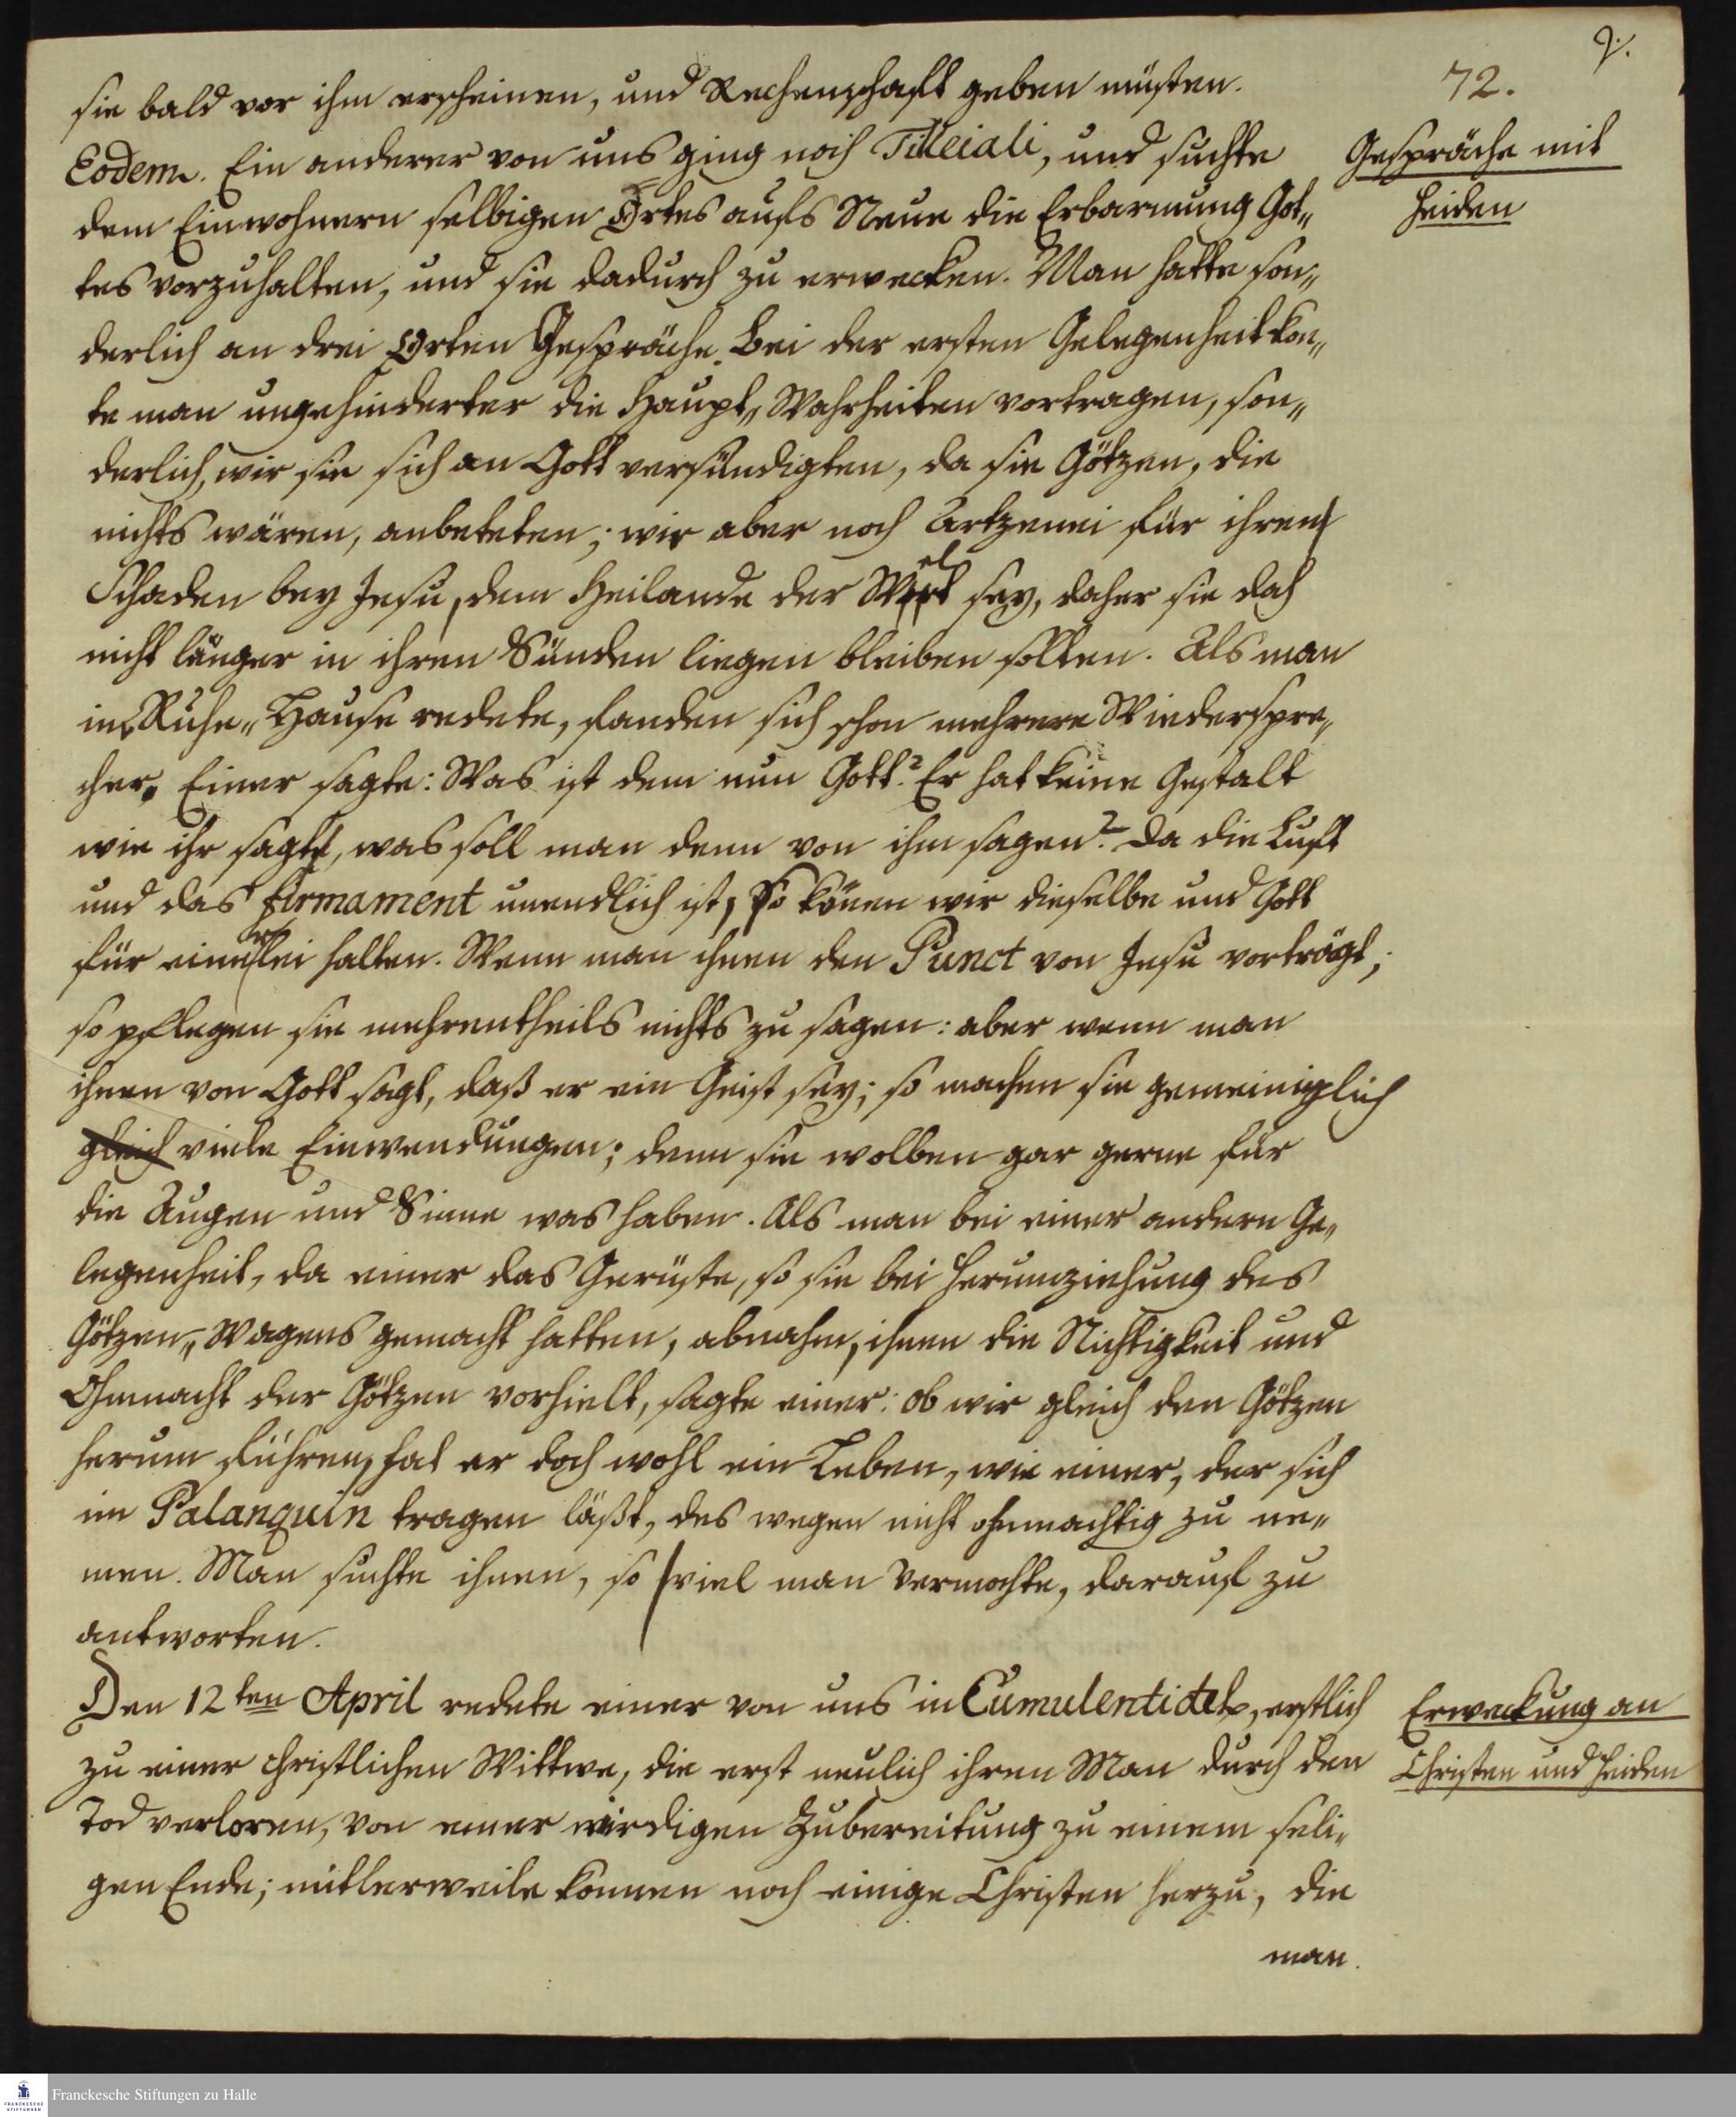 9.
72.
sie bald vor ihm erscheinen, und Rechenschaft geben müsten.
Eodem. Ein anderer von uns ging nach Tilleiali, und suchte
dem Einwohnern selbigen Ortes aufs Neue die Erbarmung Got„
tes vorzuhalten, und sie dadurch zu erwecken. Man hatte son„
derlich an drei Orten Gespräche. Bei der ersten Gelegenheit kon„
te man ungehinderter die Haupt„Wahrheiten vortragen, son„
derlich, wie sie sich an Gott versündigten, da sie Götzen, die
nichts wären, anbeteten; wie aber noch Artzenei für ihren
Schaden bey Jesu, dem Heilande der Welt sey, daher sie doch
nicht länger in ihren Sünden liegen bleiben solten. Als man
im Ruhe„Hause redete, fanden sich schon mehrere Wiederspre„
cher. Einer sagte: Was ist dem nun Gott? Er hat keine Gestalt
wie ihr sagt, was soll man denn von ihm sagen? Da die Luft
und das firmament unendlich ist, so könen wir dieselbe und Gott
für einerlei halten. Wenn man ihnen den Punct von Jesu vorträgt;
so pflegen sie mehrentheils nichts zu sagen: aber wenn man
ihnen von Gott sagt, daß er ein Geist sey; so machen sie gemeiniglich
gleich viele Einwendungen; denn sie wolben gar gerne für
die Augen und Sinne was haben. Als man bei einer andern Ge„
legenheit, da einer das Gerüste, so sie bei Herumziehung des
Götzen„Wagens gemacht hatten, abnahm, ihnen die Nichtigkeit und
Ohnmacht der Götzen vorhielt, sagte einer: ob wir gleich den Götzen
herum führen, hat er doch wohl ein Leben, wie einer, der sich
im Palanquin tragen läßt, des wegen nicht ohnmachtig zu ne„
men. Man suchte ihnen, so viel man vermochte, darauf zu
antworten.
Den 12ten April redete einer von uns in Cumulentidel, erstlich
zu einer christlichen Wittwe, die erst neulich ihren Man durch den
Tod verloren, von einer wirdigen Zubereitung zu einem seli„
gen Ende; mitlerweile komen noch einige Christen herzu, die
man
Gespräche mit
Heiden
Erweckung an
Christen und Heiden
Franckesche Stiftungen zu Halle
FRANCKESCHE
STIFTUNGEN